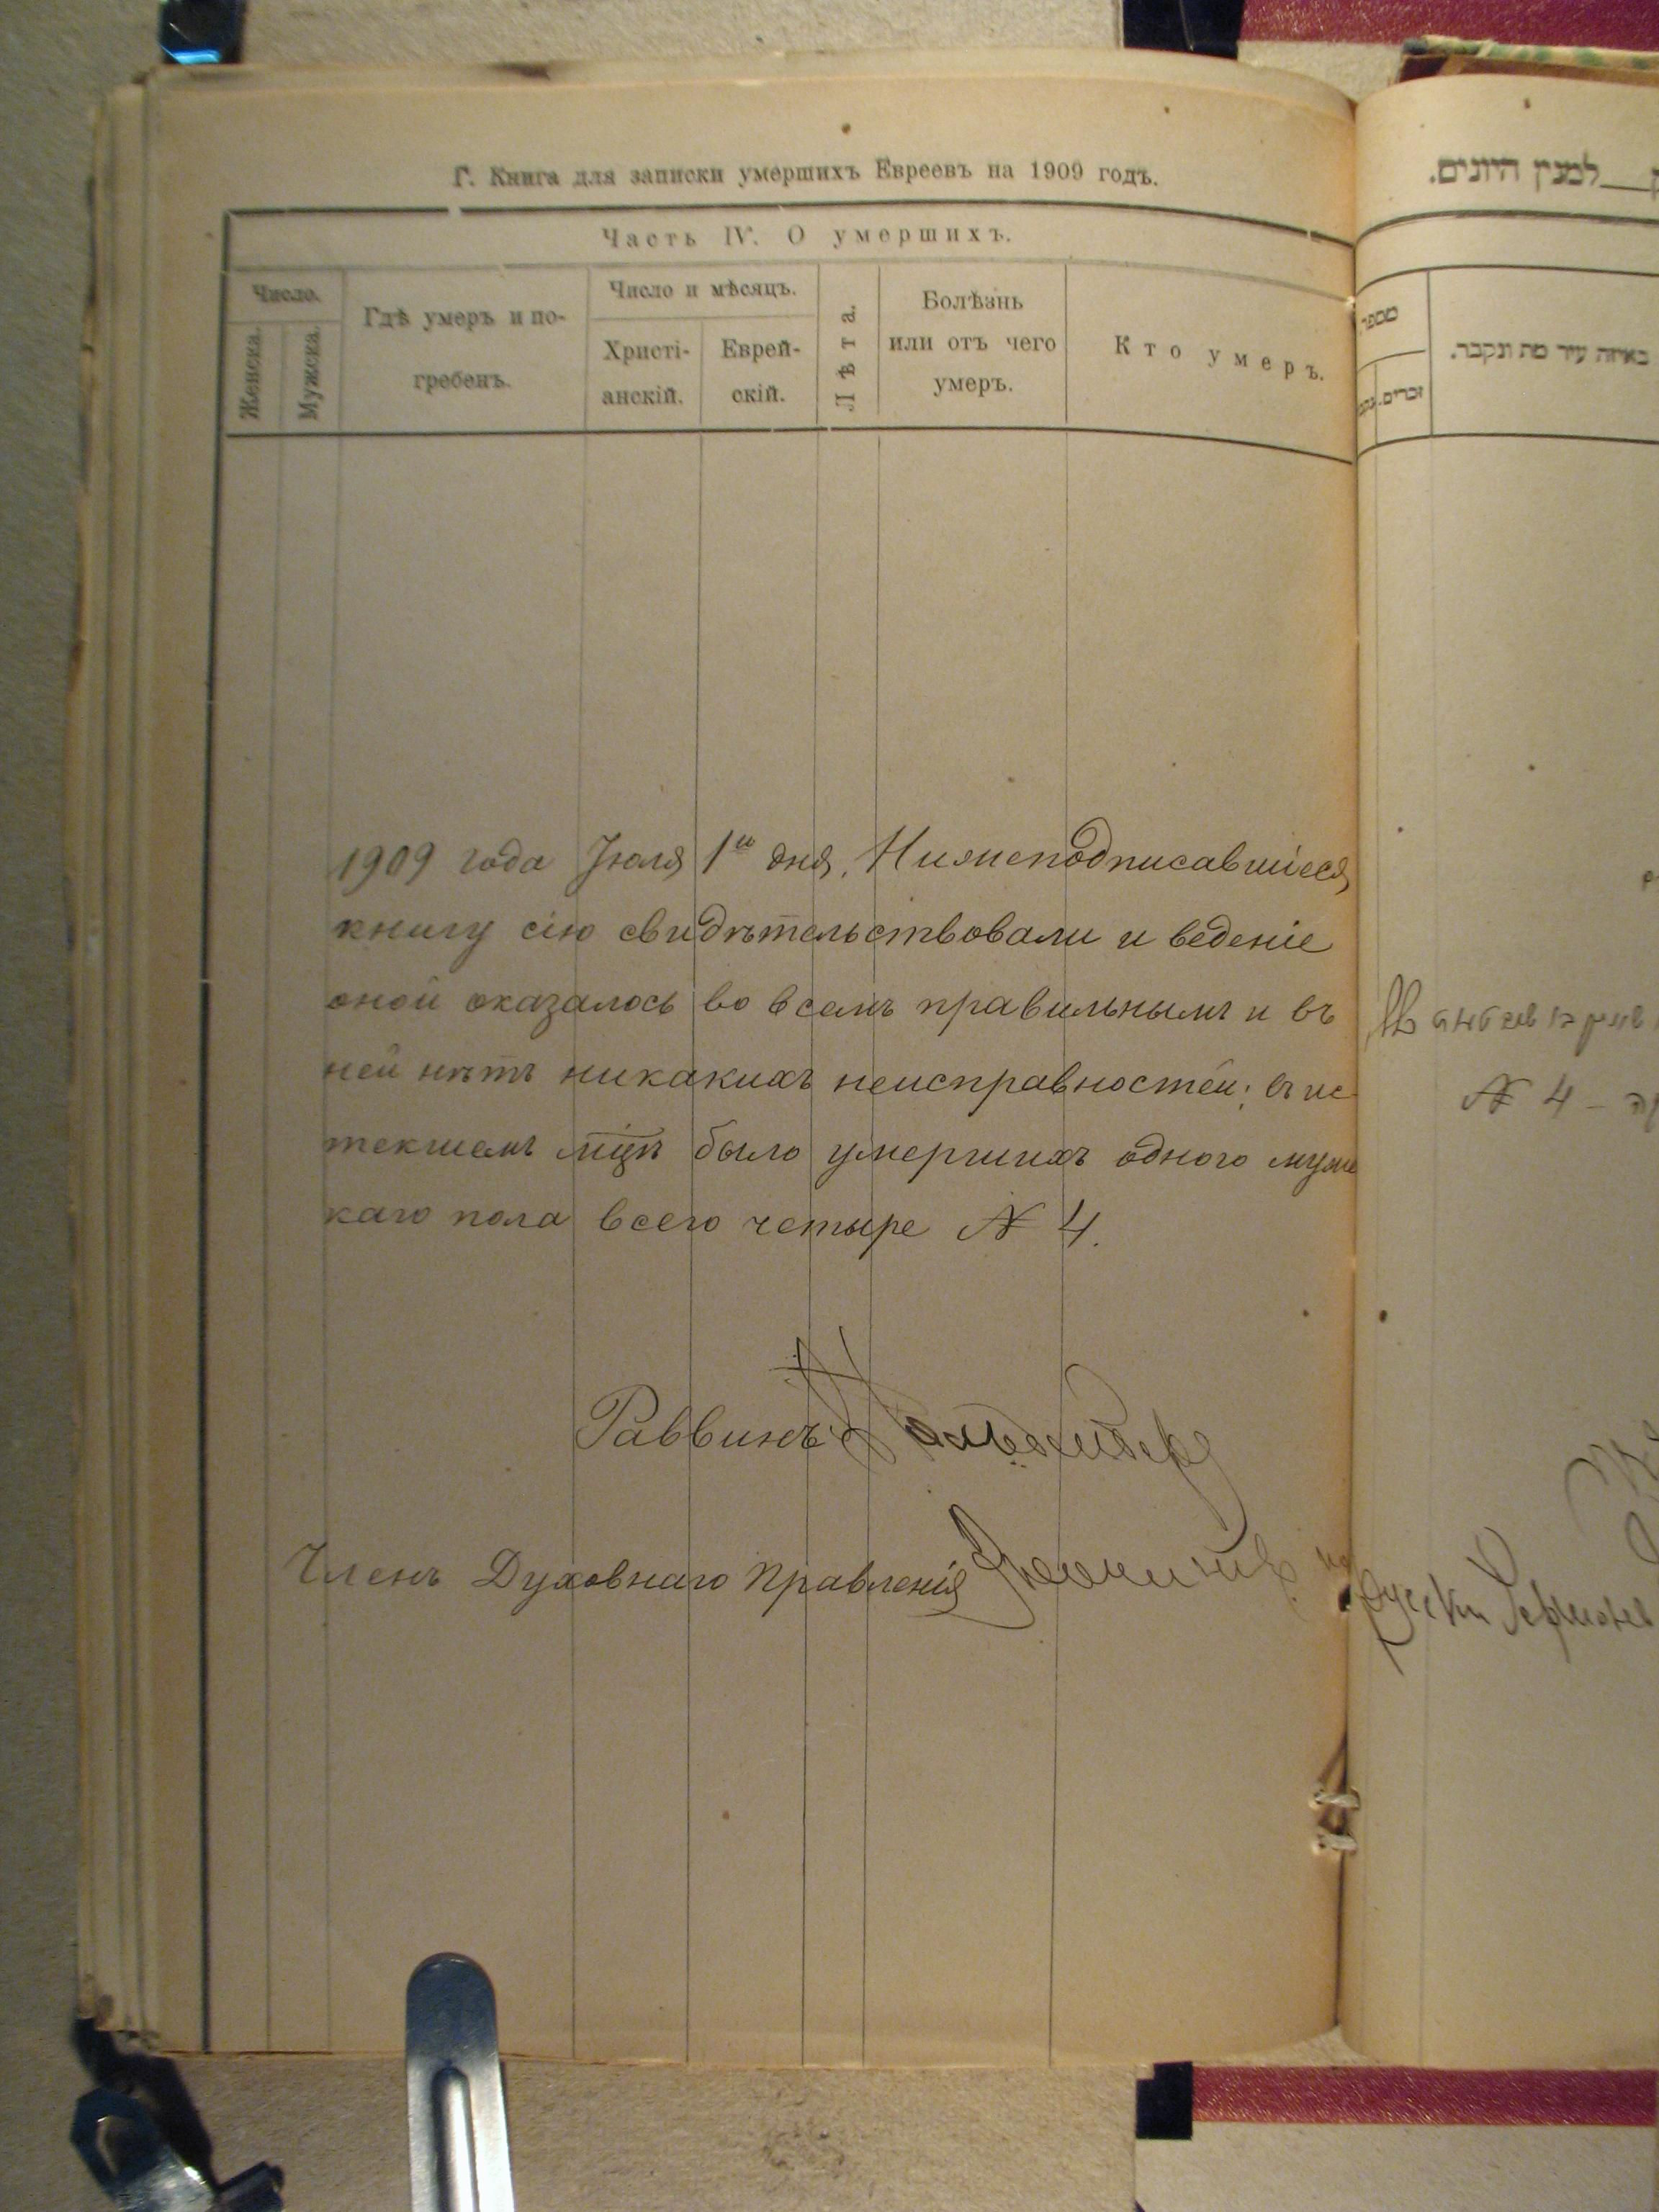 Г. Книга для записки умершихъ Евреевъ на 1909 годъ.
Часть IV. О умершихъ.
Число.
Женска.
Мужска.
Гдѣ умеръ и по-
гребенъ.
Число и мѣсяцъ.
Христі-
анскій.
Еврей-
скій.
Лѣта.
Болѣзнь
или отъ чего
умеръ.
Кто умеръ.
1909 года Іюля 1го дня. Нижеподписавшіеся
книгу сію свидѣтельствовали и веденіе
оной оказалось во всемъ правильнымъ и въ
ней нѣтъ никакихъ неисправностей; въ ис-
текшемъ мцѣ было умершихъ одного муже
каго пола всего четыре № 4.
Раввинъ
Членъ Духовнаго Правленія
למנין היונים.
מספר
זכרים.
באיזה עיר מת ונקבר.
№ 4 –